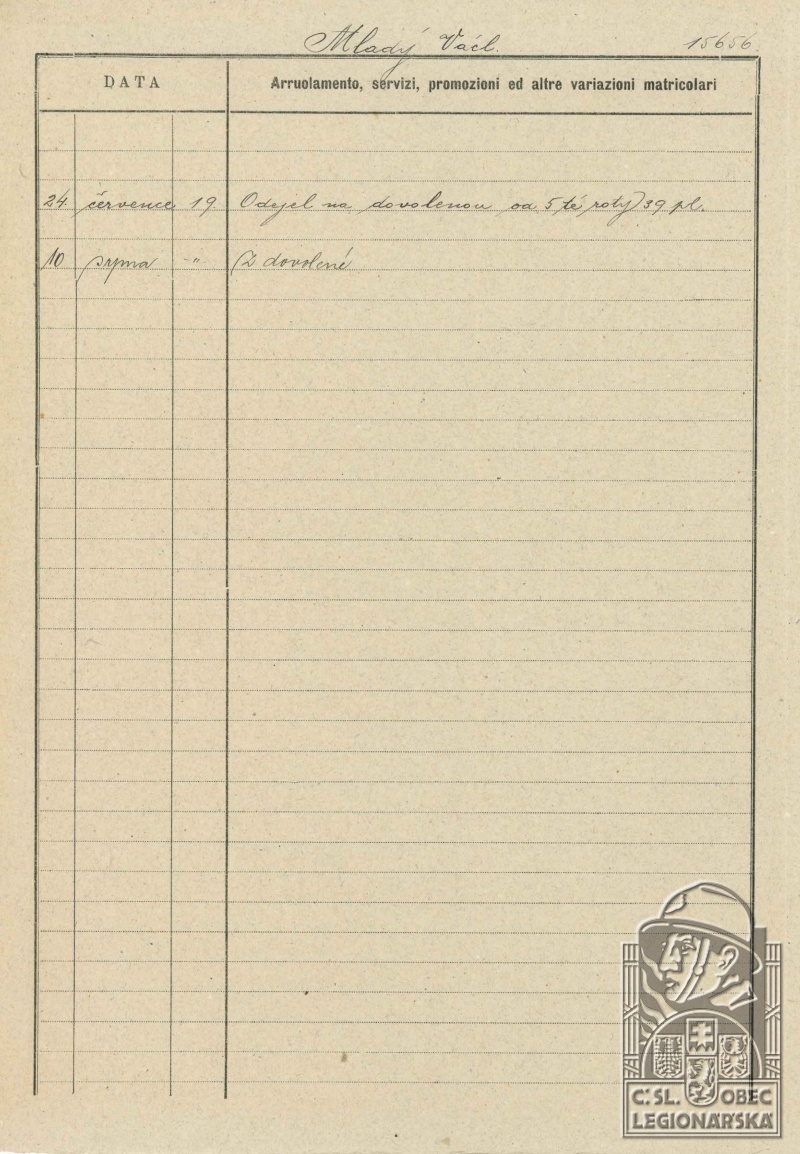 Mladý Václ. 15656.
DATA Arruolamento, servizi, promozioni ed altre variazioni matricolari
24. července 19 Odejel na dovolenou od 5 té roty 39 pl.
10 srpna -"- Z dovolené
Č: SL. OBEC
LEGIONÁŘSKÁ